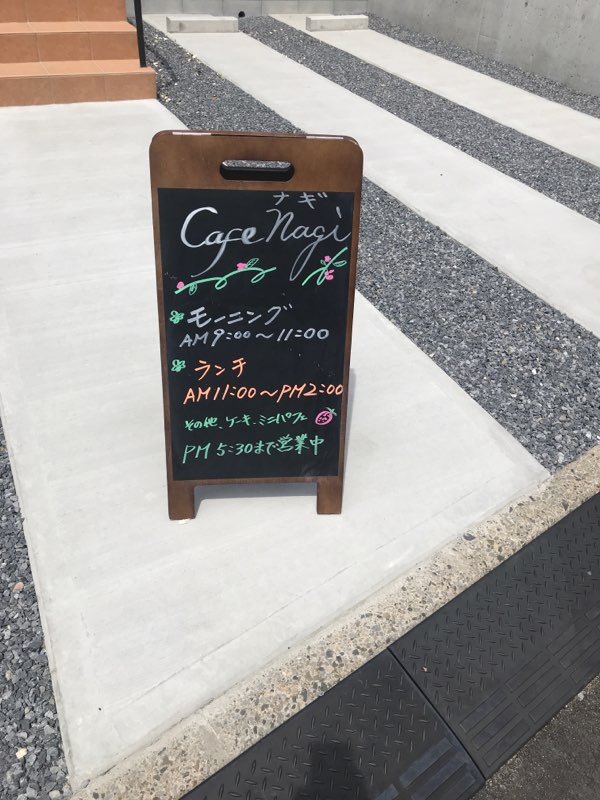 ナギ
Cafe Nagi
モーニング
AM 9:00〜11:00
ランチ
AM 11:00〜PM2:00
その他、ケーキ、ミニパフェ
PM 5:30まで営業中